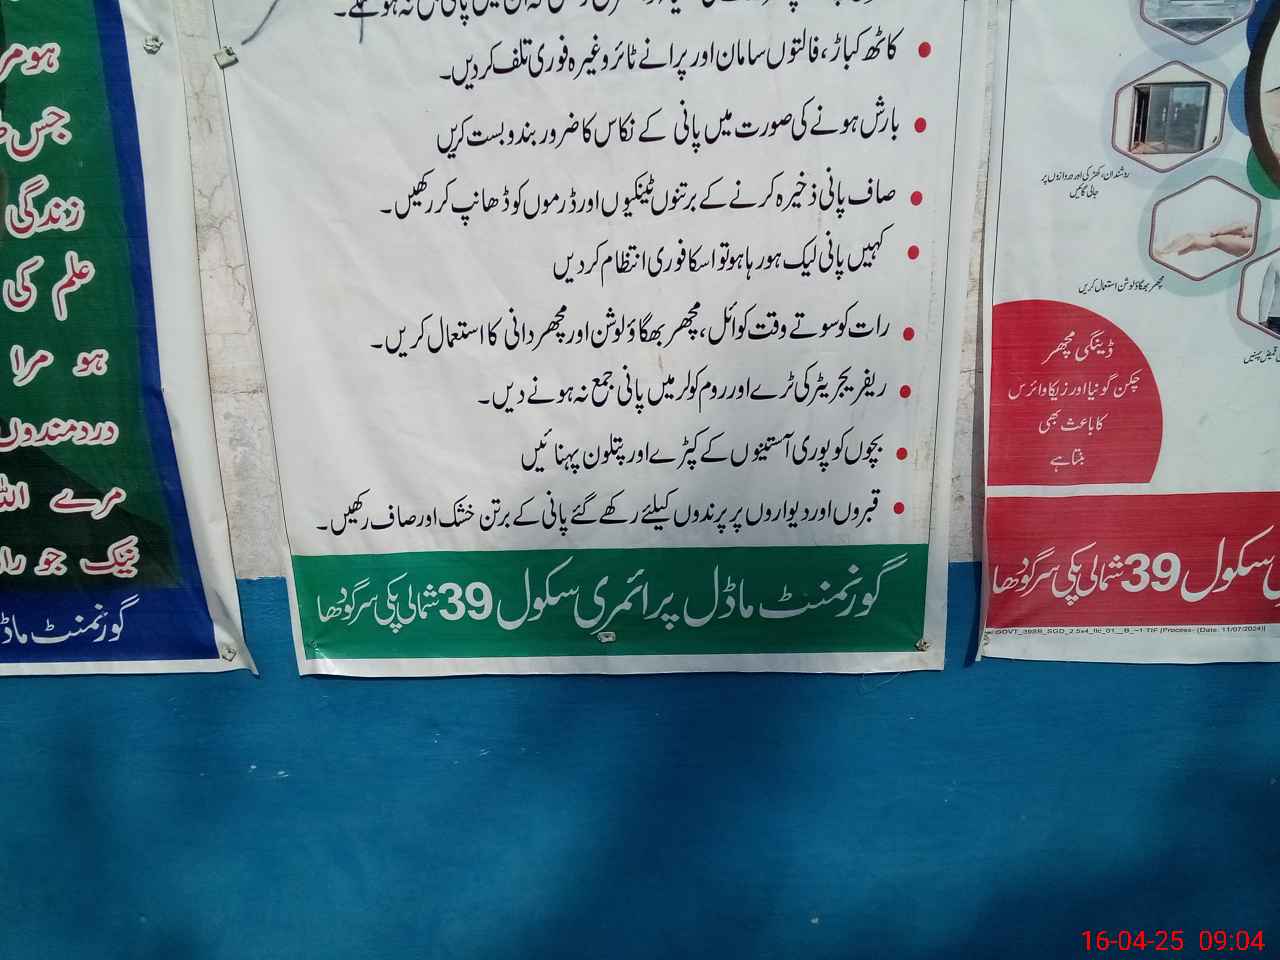 کاٹھ کباڑ، فالتوں سامان اور پرانے ٹائر وغیرہ فوری تلف کر دیں۔
بارش ہونے کی صورت میں پانی کے نکاس کا ضرور بندوبست کریں
صاف پانی ذخیرہ کرنے کے برتنوں ٹینکیوں اور ڈرموں کو ڈھانپ کر رکھیں۔
کہیں پانی لیک ہو رہا ہو تو اسکا فوری انتظام کر دیں
رات کو سوتے وقت کوائل، مچھر بھگاؤ لوشن اور مچھر دانی کا استعمال کریں۔
ریفریجریٹر کی ٹرے اور روم کولر میں پانی جمع نہ ہونے دیں۔
بچوں کو پوری آستینوں کے کپڑے اور پتلون پہنائیں
قبروں اور دیواروں پر پرندوں کیلئے رکھے گئے پانی کے برتن خشک اور صاف رکھیں۔
گورنمنٹ ماڈل پرائمری سکول 39 شمالی پکی سرگودھا
روشندان، کھڑکی اور دروازوں پر
جالی لگائیں
مچھر بھگاؤ لوشن استعمال کریں
قمیض پہنیں
ڈینگی مچھر
چکن گونیا اور زیکا وائرس
کا باعث بھی
بنتا ہے
سکول 39 شمالی پکی سرگودھا
GOVT_39SB_SGD_2.5x4_flc_01__B_~1.TIF (Process- (Date: 11/07/2024)
ہو مر
جس
زندگی
علم کی
ہو مرا
دردمندوں
مرے
نیک جو
گورنمنٹ
16-04-25 09:04